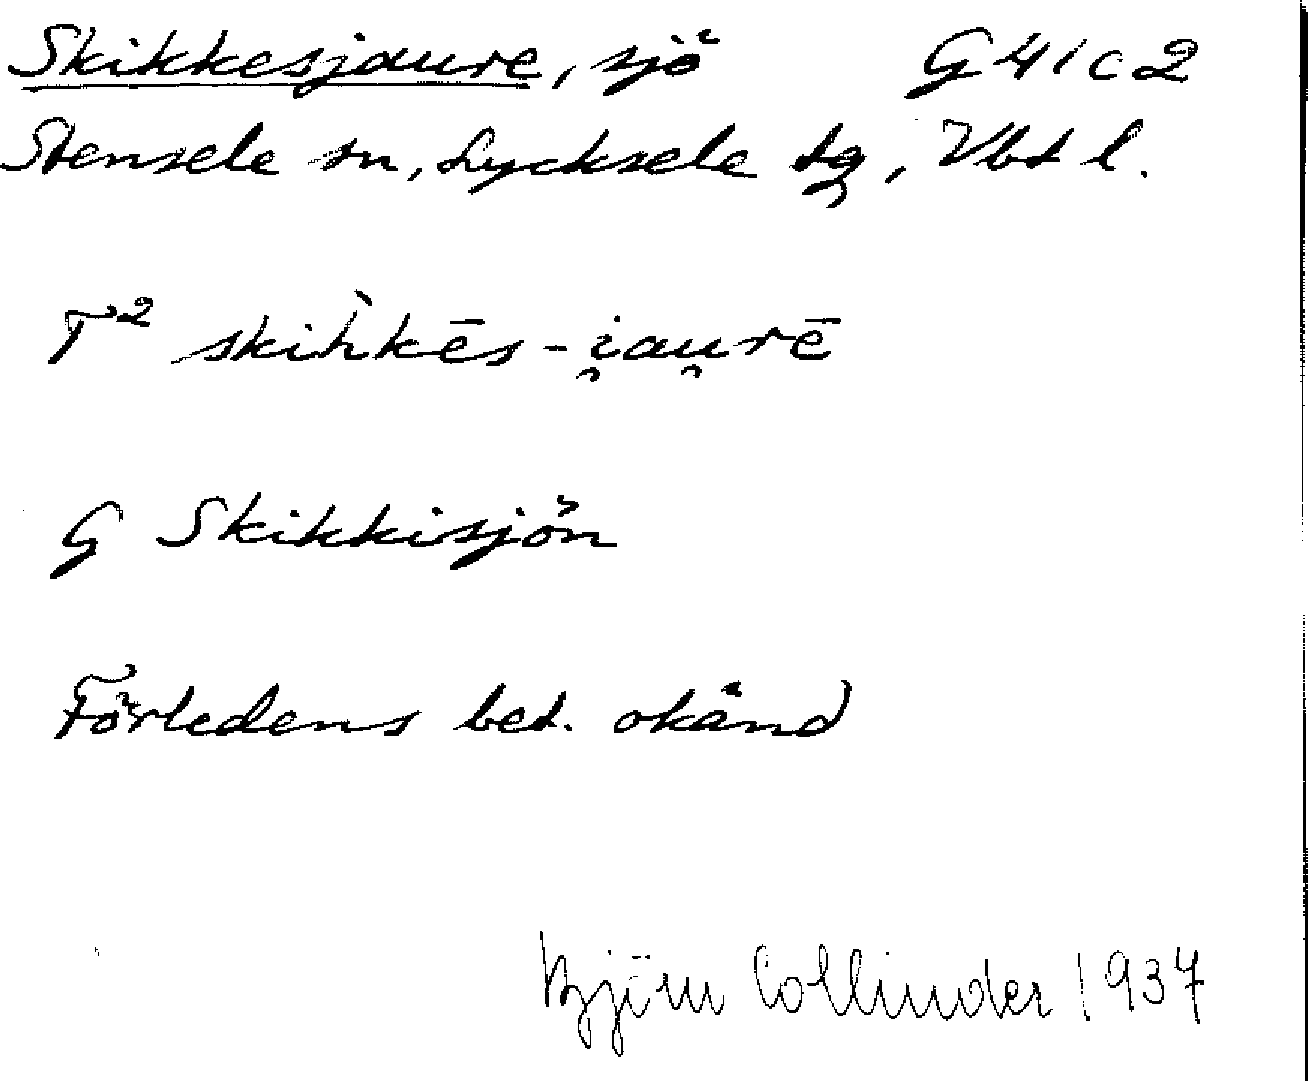 Skikkesjaure, sjö G 41 c 2
Stensele sn, Lycksele tg, Vbt l.
T² skih̀kēs-i̯au̯rē
G Skikkisjön
Förledens bet. okänd
Björn Collinder 1937